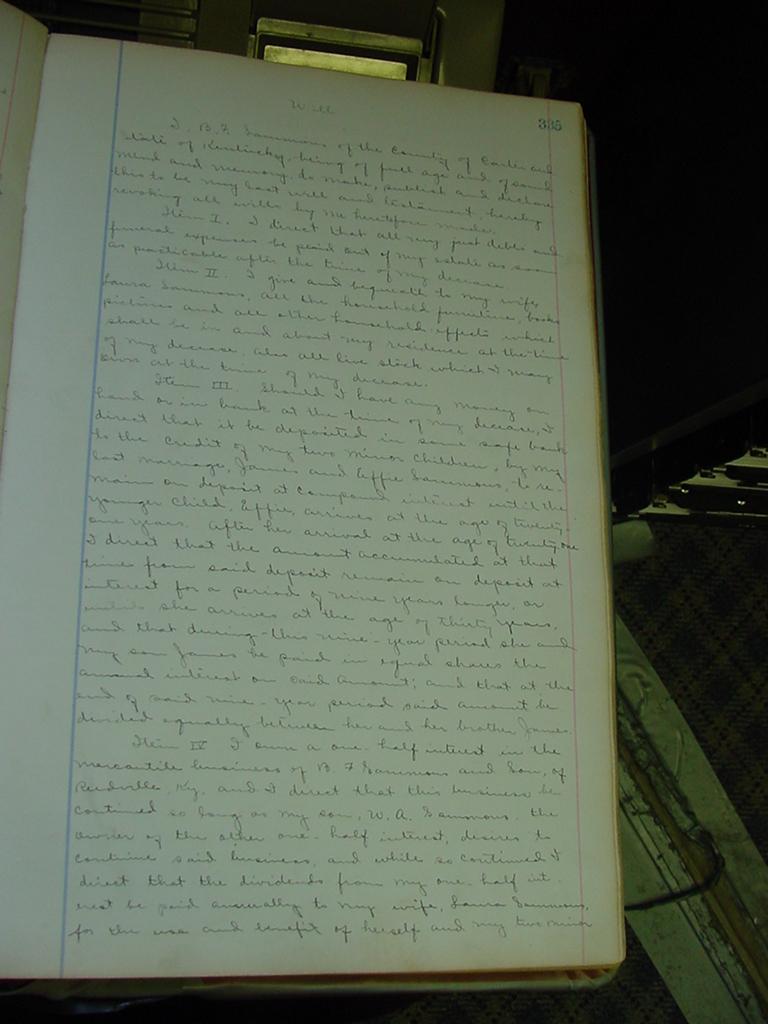 Will
335
I, B. F. Sammons of the County of Carter and
State of Kentucky, being of full age and of sound
mind and memory, do make, publish and declare
this to be my last will and testament, hereby
revoking all wills by me heretofore made.
Item I. I direct that all my just debts and
funeral expenses be paid out of my estate as soon
as practicable after the time of my decease.
Item II. I give and bequeath to my wife,
Laura Sammons, all the household furniture, books
pictures and all other household effects which
shall be in and about my residence at the time
of my decease, also all live stock which I may
own at the time of my decease.
Item III. Should I have any money on
hand or in bank at the time of my decease, I
direct that it be deposited in some safe bank
to the credit of my two minor children, by my
last marriage, James and Effie Sammons, to re-
main on deposit at compound interest until the
younger child, Effie, arrives at the age of twenty-
one years. After her arrival at the age of twenty one
I direct that the amount accumulated at that
time from said deposit remain on deposit at
interest for a period of nine years longer, or
until she arrives at the age of thirty years,
and that during this nine-year period she and
my son James be paid in equal shares the
annual interest on said amount; and that at the
end of said nine-year period said amount be
divided equally between her and her brother James.
Item IV I own a one-half interest in the
mercantile business of B. F Sammons and Son, of
Ky. and I direct that this business be
continued so long as my son, W. A. Sammons, the
owner of the other one-half interest, desires to
continue said business, and while so continued I
direct that the dividends from my one-half int
erest be paid annually to my wife, Laura Sammons,
for the use and benefit of herself and my two minor